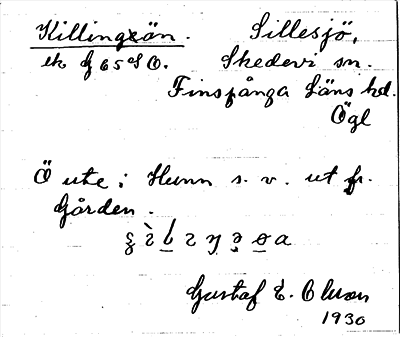 Killingxön. Sillesjö,
ek f 65 S O. Skedevi sn.
Finspånga Läns hd.
Ögl
Ö ute i Hunn s. v. ut fr.
Gården.
Gustaf E. Olson
1930